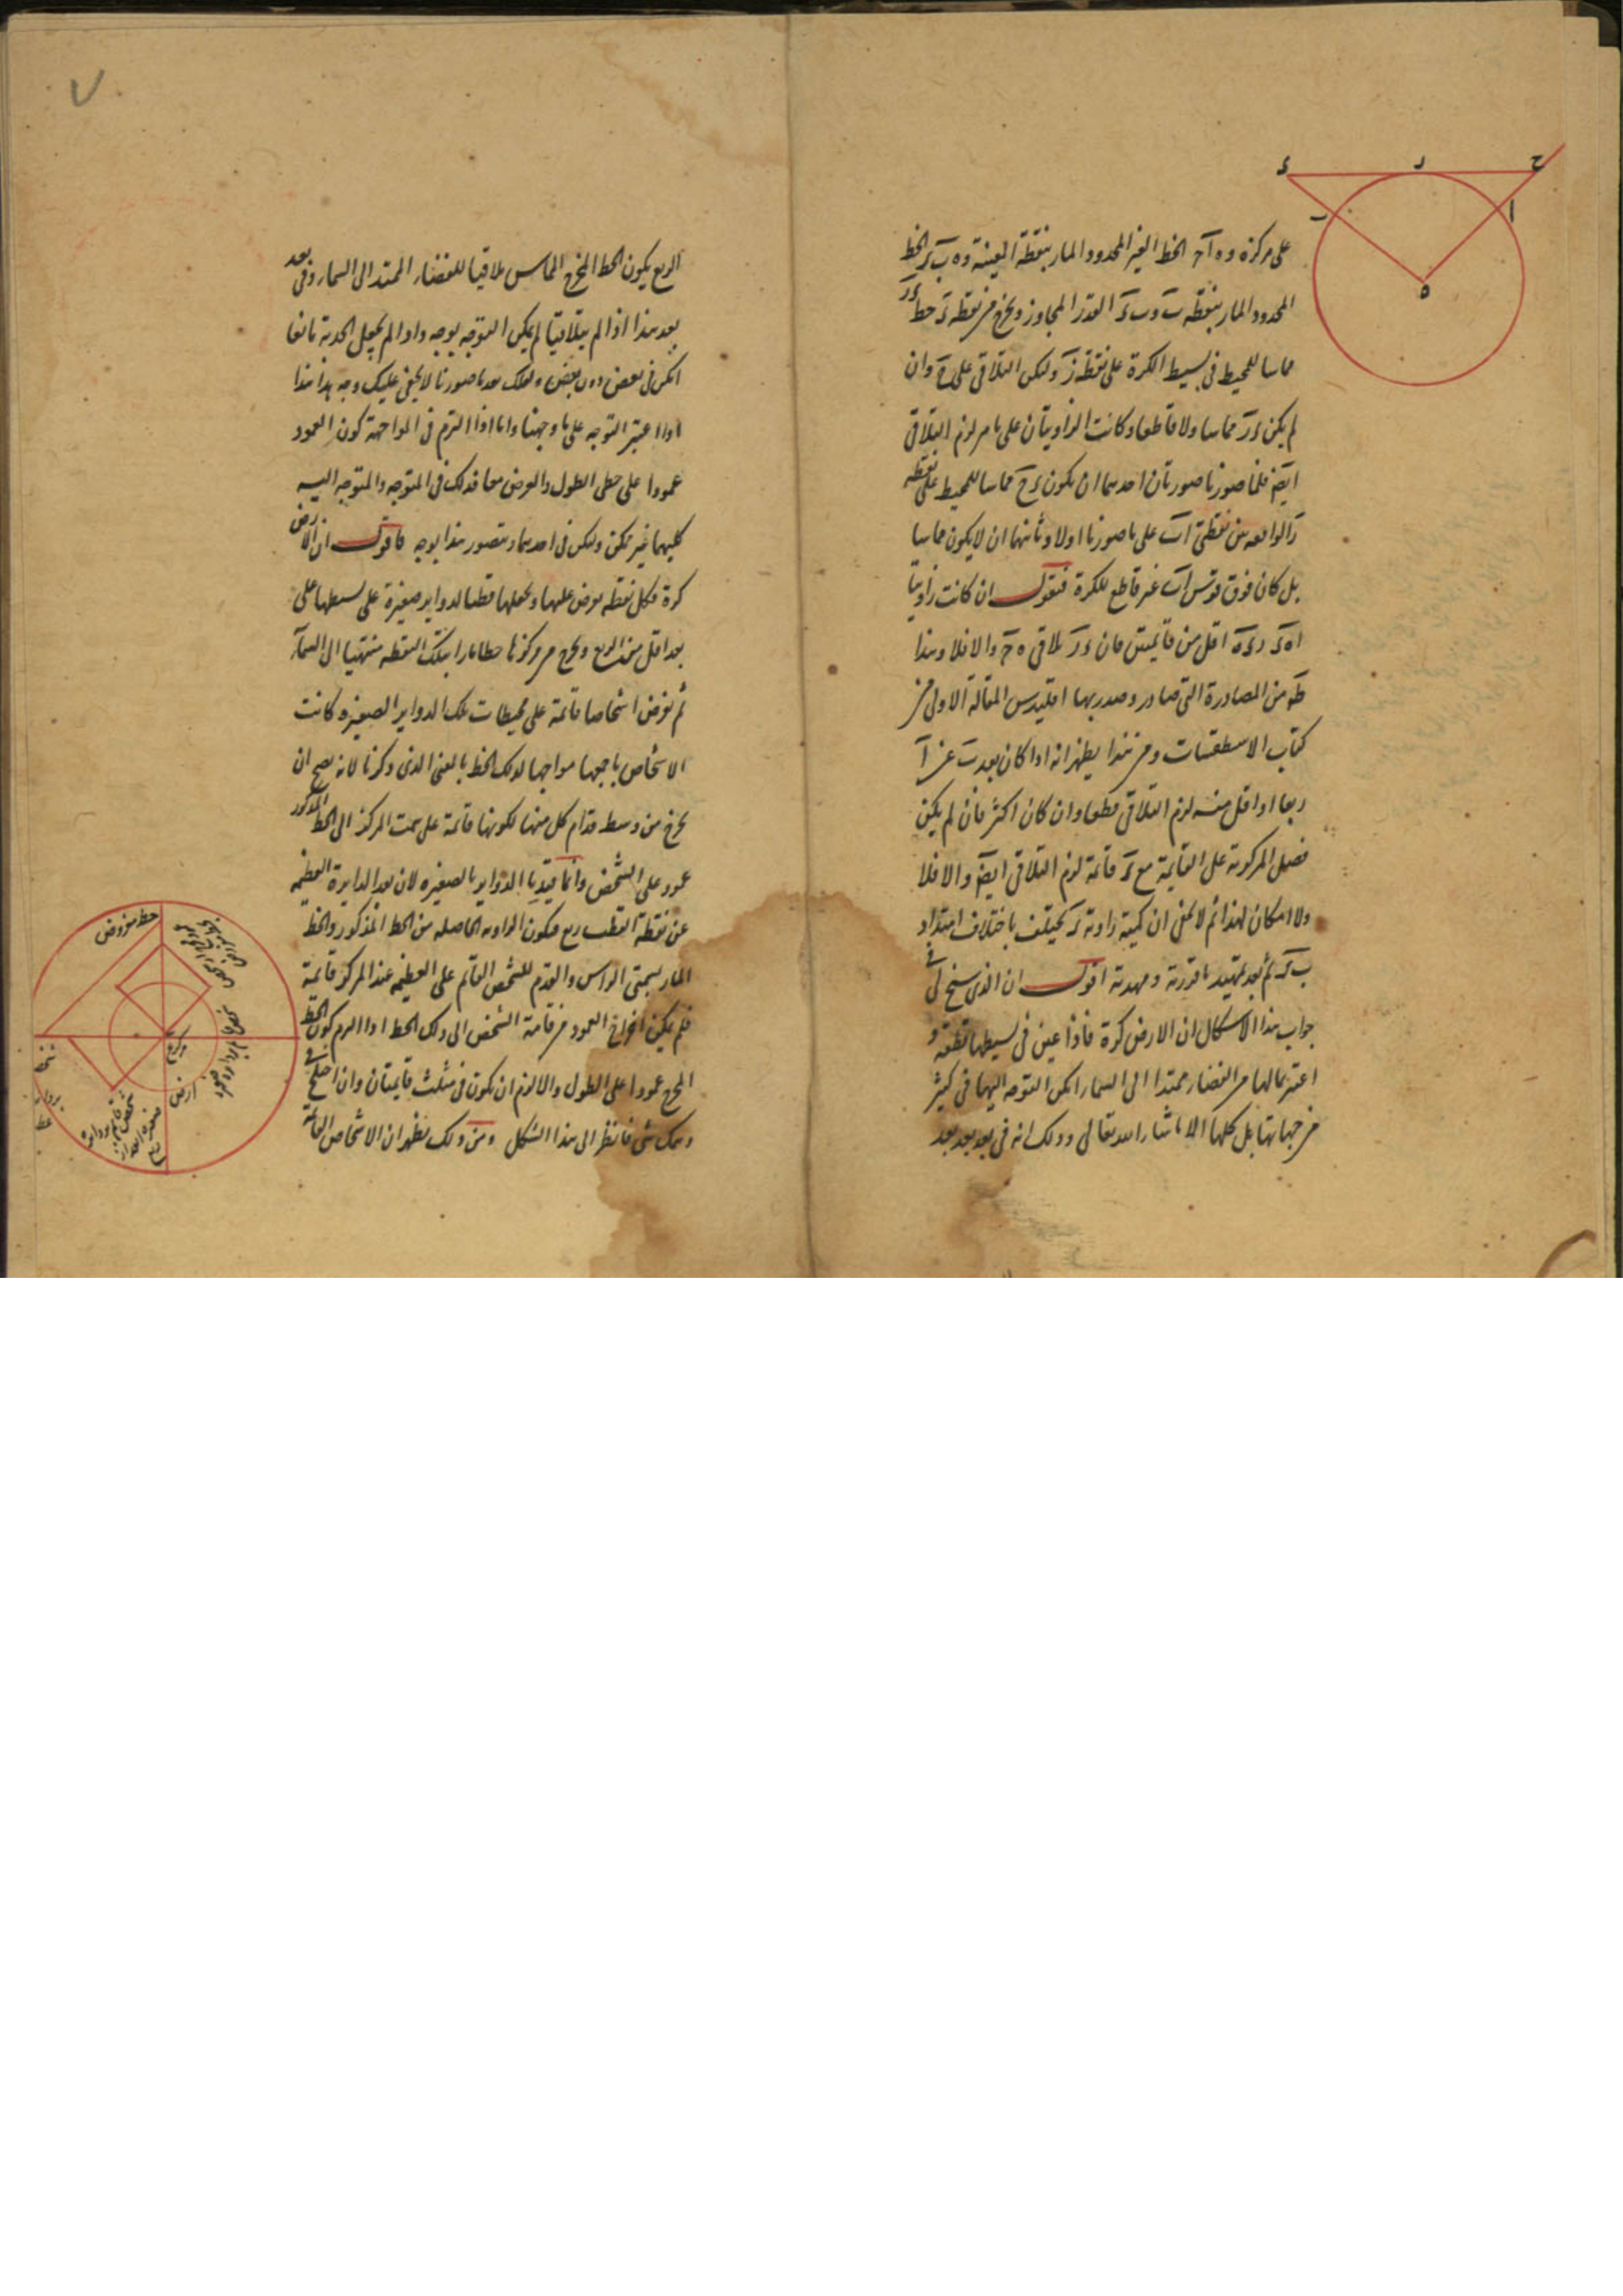 ح
ر
ء
ا
ب
ه
على مركزه و ه ا ح الخط الغير المحدود المار بنقطة المعينة و ه ب ء الخط
المحدود المار بنقطة ب و ب ء القدر المجاوز ونخرج من نقطة ء خط ء ر
مماسا للمحيط في بسيط الكرة على نقطة ر وليكن التلاقي على ح وان
لم يكن ء ر مماسا ولا قاطعا وكانت الزاويتان على ما مر لزم التلاقي
ايضا فلما صورنا صورتان احديهما ان يكون ء ح مماسا للمحيط على نقطة
ر الواقعة بين نقطتي ا ب على ما صورنا اولا وثانيهما ان لا يكون مماسا
بل كان فوق قوس ا ب غير قاطع للكرة فنقول ان كانت زاويتا
ا ه ء ر ء ه اقل من قائمتين فان ء ر يلاقي ه ح والا فلا وهذا
من المصادرة التي صادر وصدر بها اقليدس المقالة الاولى من
كتاب الاسطقسات ومن هذا يظهر انه اذا كان بعد ب عن ا
ربعا او اقل منه لزم التلاقي قطعا وان كان اكثر فان لم يكن
فضل المركزية على القايمة مع ء قائمة لزم التلاقي ايضا والا فلا
ولا امكان لهذا ثم لا يخفى ان كمية زاوية ء يختلف باختلاف امتداد
ب ء ثم بعد تمهيد ما قررته ومهدته اقول ان الذي سنح لي في
جواب هذا الاشكال ان الارض كرة فاذا عين في بسيطها نقطة و
اعتبر مالها من الفضاء ممتدا الى السماء امكن التوجه اليها في كثير
من جهاتها بل كلها الا ما شاء الله تعالى وذلك انه في بعد بعد بعد
٧
الربع يكون الخط المخرج المماس ملاقيا للفضاء الممتد الى السماء وفي بعد
بعد هذا اذا لم يتلاقيا لم يمكن التوجه بوجه واذا لم يجعل الحدبة مانعا
امكن في بعض دون بعض ولعلك بعد ما صورنا لا يخفى عليك وجه هذا هذا
اذا اعتبر التوجه على ما وجهنا واما اذا التزم في المواجهة كون العمود
عمودا على خطي الطول والعرض معا فذلك في المتوجه والمتوجه اليه
كليهما غير ممكن وليكن في احديهما ويتصور هذا بوجه فاقول ان الارض
كرة فكل نقطة نفرض عليها ونجعلها قطبا لدواير صغيرة على بسيطها على
بعد اقل من الربع ونخرج من مركزها خطا مارا بتلك النقطة منتهيا الى السماء
ثم نفرض اشخاصا قائمة على محيطات تلك الدواير الصغيرة كانت
الاشخاص باجمعها مواجها لذلك الخط بالمعنى الذي ذكرنا لانه يصح ان
يخرج من وسط قدام كل منها لكونها قائمة على سمت المركز الى الخط المذكور
عمود على الشخص وانما قيدنا الدواير بالصغيرة لان بعد الدايرة العظيمة
عن نقطة القطب ربع فيكون الزاوية الحاصلة من الخط المذكور والخط
المار بسمتي الراس والقدم للشخص القائم على العظيمة عند المركز قائمة
فلم يمكن اخراج العمود من قامة الشخص الى ذلك الخط اذا لزم كون الخط
المخرج عمودا على الطول والا لزم ان يكون في مثلث قايمتان وان اختلج في
وهمك شي فانظر الى هذا الشكل ومن ذلك يظهر ان الاشخاص القائمة
خط مفروض
مركز
ارض